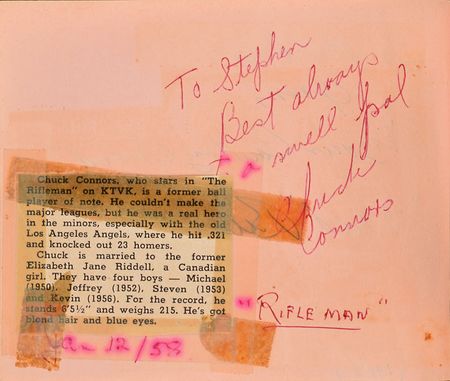 To Stephen
Best always
to a swell pal
Chuck
Connors
"RIFLEMAN"
Chuck Connors, who stars in "The
Rifleman" on KTVK, is a former ball
player of note. He couldn't make the
major leagues, but he was a real hero
in the minors, especially with the old
Los Angeles Angels, where he hit .321
and knocked out 23 homers.
Chuck is married to the former
Elizabeth Jane Riddell, a Canadian
girl. They have four boys — Michael
(1950). Jeffrey (1952), Steven (1953)
and Kevin (1956). For the record, he
stands 6'5½" and weighs 215. He's got
blond hair and blue eyes.
12/58